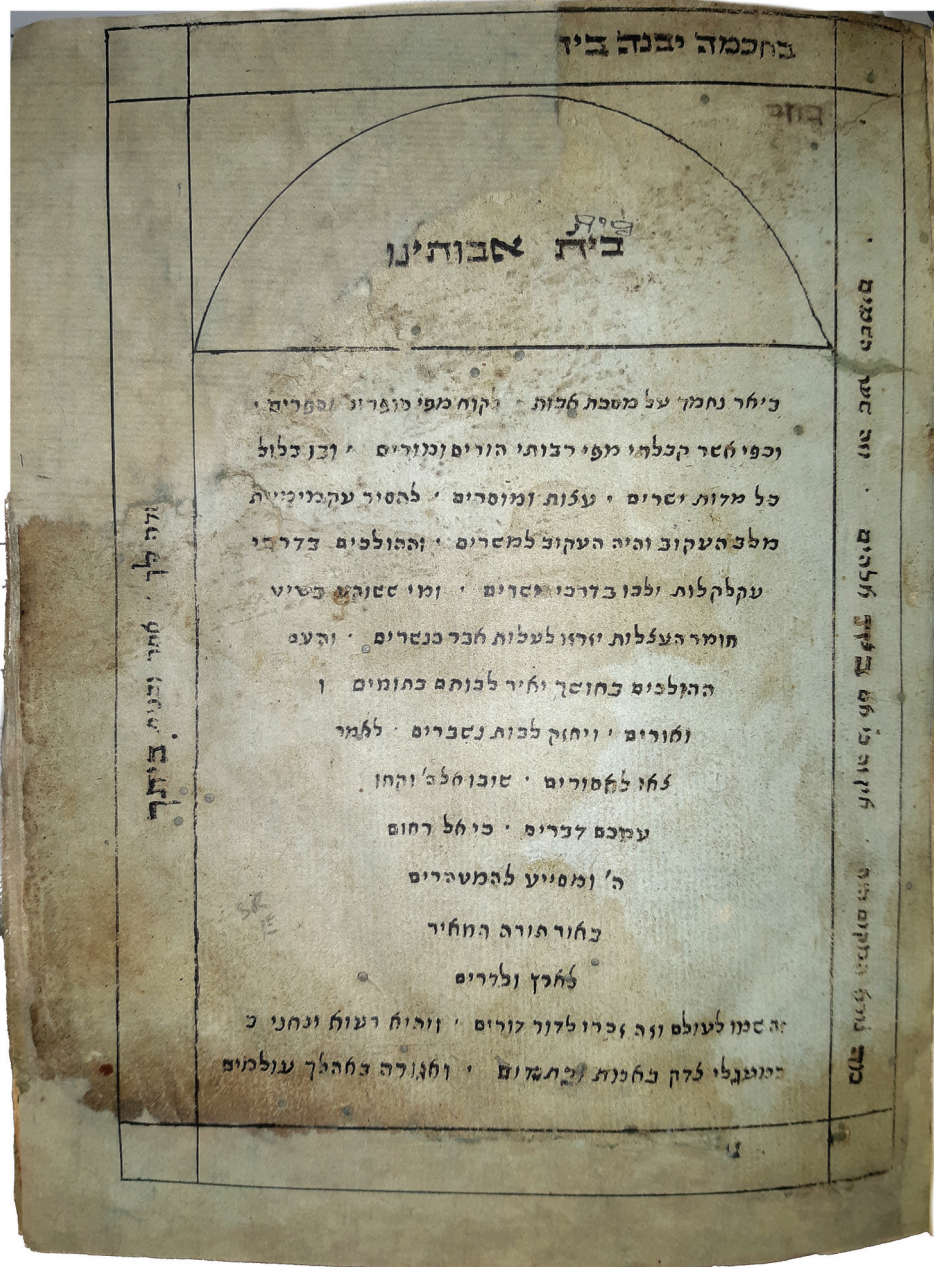 בחכמה יבנה בית
בית
בית אבותינו
ביאר נחמד על מסכת אבות · לקוח מפי סופרים וספרים ·
וכפי אשר קבלתי מפי רבותי הורים ומורים · ובו כלול
כל מדות ישרים · עצות ומוסרים · להסיר עקמימיית
מלב העקוב והיה העקוב למשרים · וההולכים בדרכי
עקלקלות ילכו בדרכי ישרים · ומי ששוקע בטיט
חומר העצלות יזרזו לעלות אבר כנשרים · והעם
ההולכים בחושך יאיר לבותם בתומים ו
ואורים · ויחזק לבות נשברים · לאמר
צאו לאסורים · שובו אלי' וקחו
עמכם דברים · כי אל רחום
ה' ומסייע להמטהרים
באור תורה המאיר
לארץ ולדרים
זה שמו לעולם וזה זכרו לדור דורים · ויהיא רעוא ינחני ב
במעגלי צדק באמת ובתמים · ואגורה באהלך עולמים
מה נורא המקום הזה · אין זה כי אם בית אלהים · וזה שער השמים ·
ודה לך · אחר ובנית ביתך